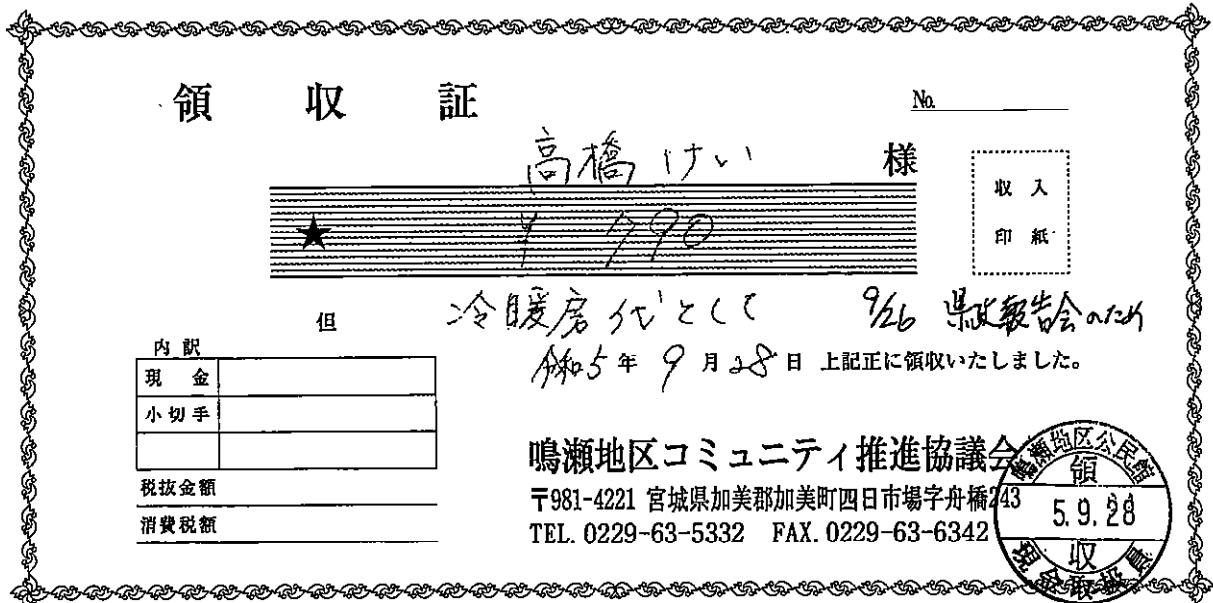 領 収 証
No.
高橋 けい 様
収 入
印 紙
★ ¥ 790
但 冷暖房代として 9/26 県政報告会のため
内 訳
令和5年 9月28日 上記正に領収いたしました。
現 金
小切手
税抜金額
消費税額
鳴瀬地区コミュニティ推進協議会
〒981-4221 宮城県加美郡加美町四日市場字舟橋243
TEL. 0229-63-5332 FAX. 0229-63-6342
鳴瀬地区公民館
領
5.9.28
収